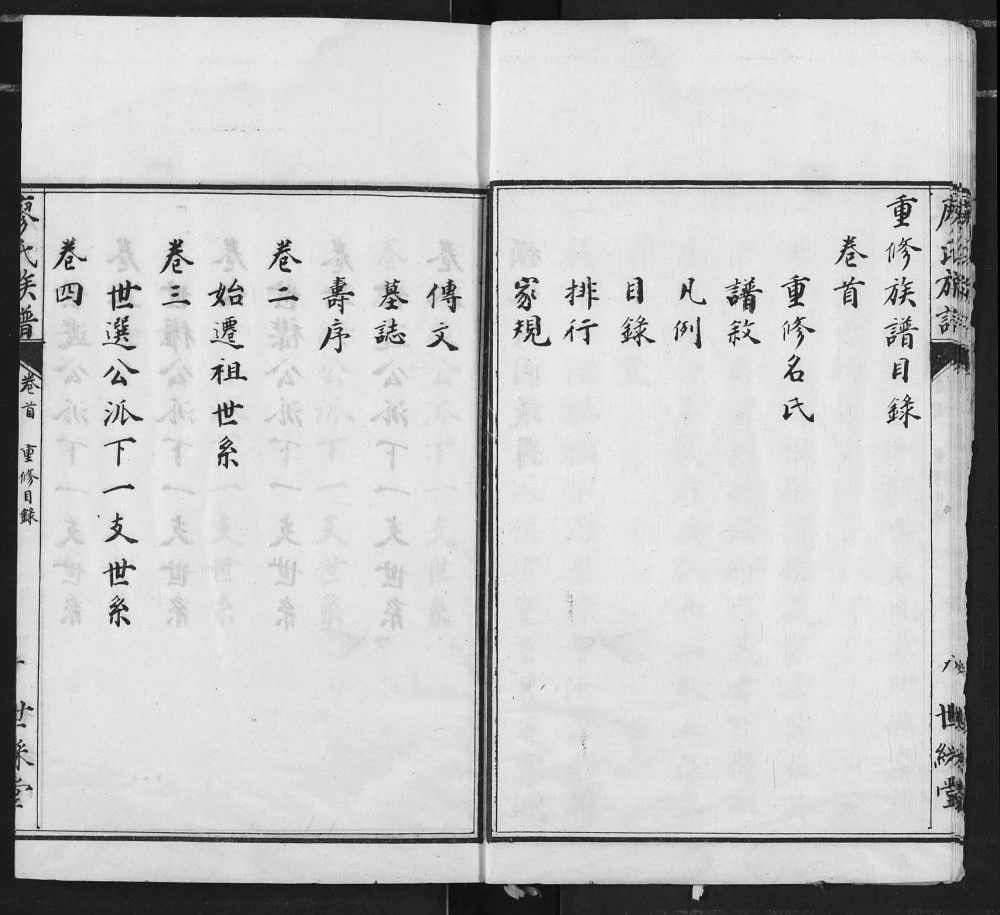 重修族譜目錄
卷首
重修名氏
譜敘
凡例
目錄
排行
家規
傳文
墓誌
壽序
卷二
始遷祖世系
卷三
世選公派下一支世系
卷四
廖氏族譜
卷首
重修目錄
世綵堂